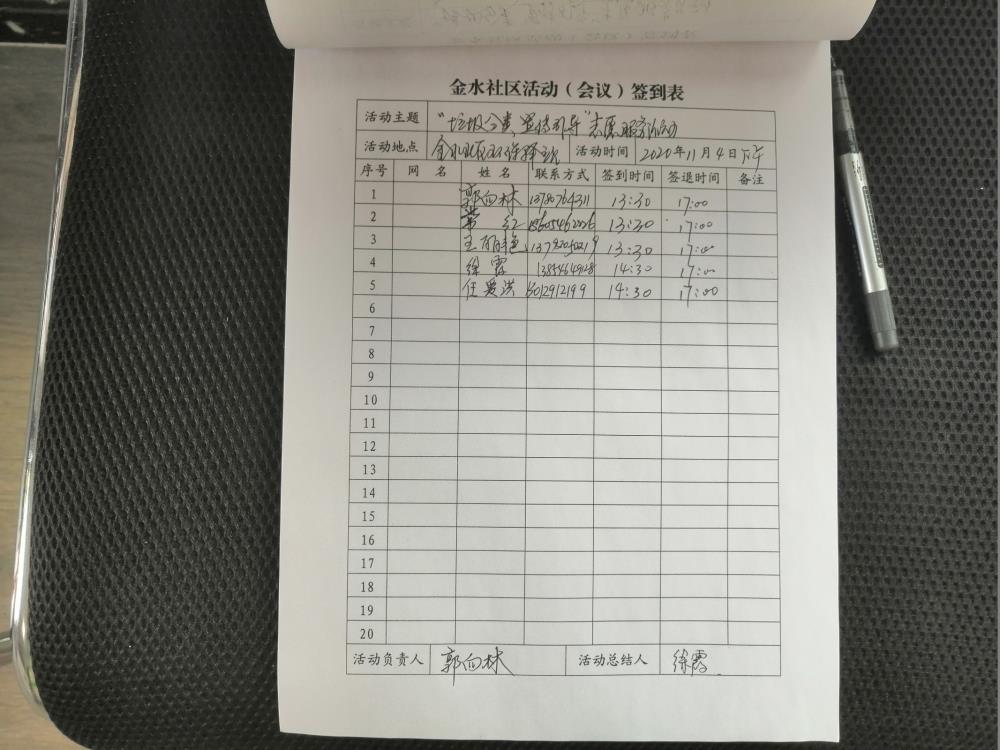 金水社区活动（会议）签到表
活动主题 "垃圾分类，宣传引导"志愿服务活动
活动地点 活动时间 2020年11月4日下午
序号 网 名 姓 名 联系方式 签到时间 签退时间 备注
1 郭向林 13780764311 13:30 17:00
2 红 13:30 17:00
3 王丽艳 13:30 17:00
4 徐霞 14:30 17:00
5 任爱洪 14:30 17:00
6
7
8
9
10
11
12
13
14
15
16
17
18
19
20
活动负责人 郭向林 活动总结人 徐霞